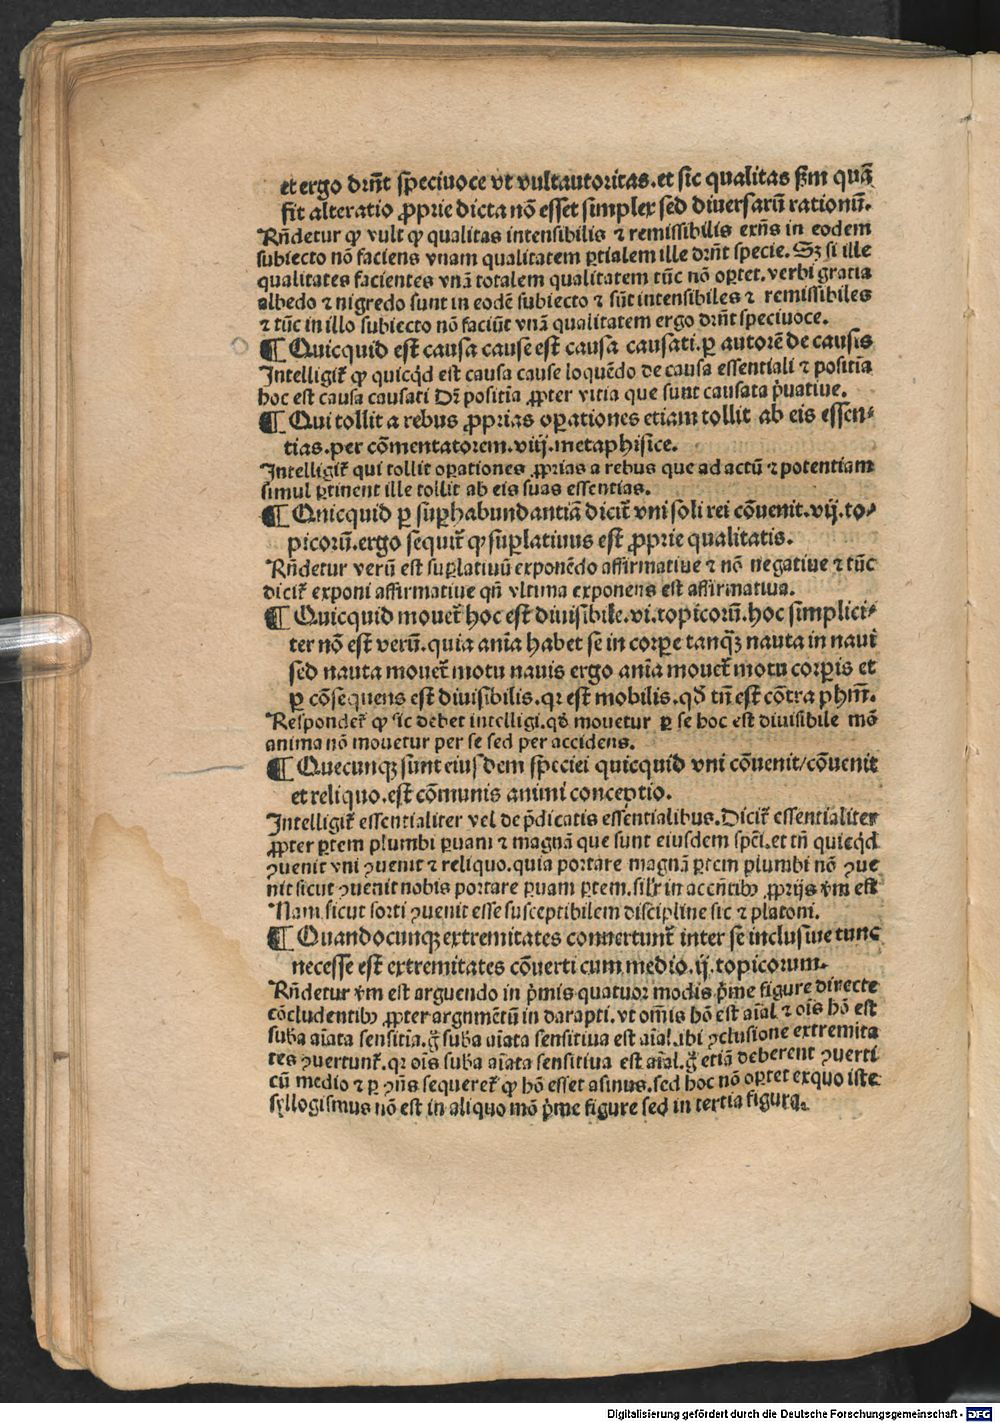 et ergo dr̄nt sp̄eciuoce vt vult autoritas. et sic qualitas ẜm quā
fit alteratio ꝓprie dicta nō esset simplex sed diuersarū rationū.
Rn̄detur ꝙ vult ꝙ qualitas intensibilis ⁊ remissibilis exn̄s in eodem
subiecto nō faciens vnam qualitatem ꝑtialem ille dr̄nt specie. Sꝫ si ille
qualitates facientes vnā totalem qualitatem tūc nō oꝑtet. verbi gratia
albedo ⁊ nigredo sunt in eodē subiecto ⁊ sūt intensibiles ⁊ remissibiles
⁊ tūc in illo subiecto nō faciūt vnā qualitatem ergo dr̄nt speciuoce.
¶ Quicquid est causa cause est causa causati. ꝑ autorē de causis
Intelligit̄ ꝙ quicq̇d est causa cause loquēdo de causa essentiali ⁊ positīa
hoc est causa causati Dr̄ positīa ꝓpter vitia que sunt causata p̄uatiue.
¶ Qui tollit a rebus ꝓprias oꝑationes etiam tollit ab eis essen⸗
tias. per cōmentatorem. viij. metaphisice.
Intelligit̄ qui tollit oꝑationes ꝓprias a rebus que ad actū ⁊ potentiam
simul ꝑtinent ille tollit ab eis suas essentias.
¶ Quicquid ꝑ suꝑhabundantiā dicit̄ vni soli rei cōuenit. vij. to⸗
picorū. ergo sequit̄ ꝙ suꝑlatiuus est ꝓprie qualitatis.
Rn̄detur verū est suꝑlatiuū exponēdo affirmatiue ⁊ nō negatiue ⁊ tūc
dicit̄ exponi affirmatiue qn̄ vltima exponens est affirmatiua.
¶ Quicquid mouet̄ hoc est diuisibile. vi. topicorū. hoc simplici⸗
ter nō est verū. quia aīa habet se in corꝑe tanqꝫ nauta in naui
sed nauta mouet̄ motu nauis ergo aīa mouet̄ motu corꝑis et
ꝑ cōsequens est diuisibilis. qꝛ est mobilis. qd̄ tn̄ est cōtra phm̄.
Respondet̄ ꝙ sic debet intelligi. qd̄ mouetur ꝑ se hoc est diuisibile mō
anima nō mouetur per se sed per accidens.
¶ Quecunqꝫ sunt eiusdem speciei quicquid vni cōuenit/cōuenit
et reliquo. est cōmunis animi conceptio.
Intelligit̄ essentialiter vel de p̄dicatis essentialibus. Dicit̄ essentialiter
ꝓpter ꝑtem plumbi ꝑuam ⁊ magnā que sunt eiusdem spēi. et tn̄ quicq̇d
ꝯuenit vni ꝯuenit ⁊ reliquo. quia portare magnā ꝑtem plumbi nō ꝯue
nit sicut ꝯuenit nobis portare ꝑuam ꝑtem. silr̄ in accn̄tibꝰ ꝓprijs v̄m est
Nam sicut sorti ꝯuenit esse susceptibilem discipline sic ⁊ platoni.
¶ Quandocunqꝫ extremitates conuertunt̄ inter se inclusiue tunc
necesse est extremitates cōuerti cum medio. ij. topicorum.
Rn̄detur v̄m est arguendo in p̄mis quatuor modis p̄me figure directe
cōcludentibꝰ ꝓpter argumētū in darapti. vt om̄is hō est aīal ⁊ oīs hō est
suba aīata sensitīa. g̊ suba aīata sensitiua est aīal. ibi ꝯclusione extremita
tes ꝯuertunt̄. qꝛ oīs suba aīata sensitiua est aīal. g̊ etiā deberent ꝯuerti
cū medio ⁊ ꝑ ꝯn̄s sequeret̄ ꝙ hō esset asinus. sed hoc nō oꝑtet exquo iste
syllogismus nō est in aliquo mō p̄me figure sed in tertia figura.
Digitalisierung gefördert durch die Deutsche Forschungsgemeinschaft - DFG